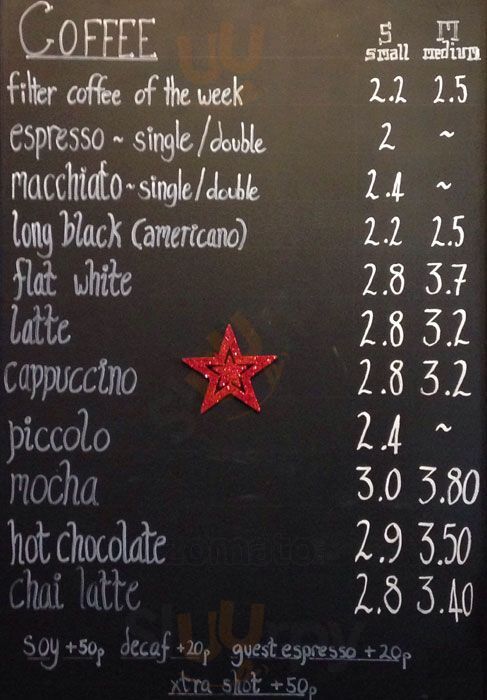 COFFEE S M
small medium
filter coffee of the week 2.2 2.5
espresso ~ single/double 2 ~
macchiato ~ single/double 2.4 ~
long black (americano) 2.2 2.5
flat white 2.8 3.7
latte 2.8 3.2
cappuccino 2.8 3.2
piccolo 2.4 ~
mocha 3.0 3.80
hot chocolate 2.9 3.50
chai latte 2.8 3.40
soy +50p decaf +20p guest espresso +20p
xtra shot +50p